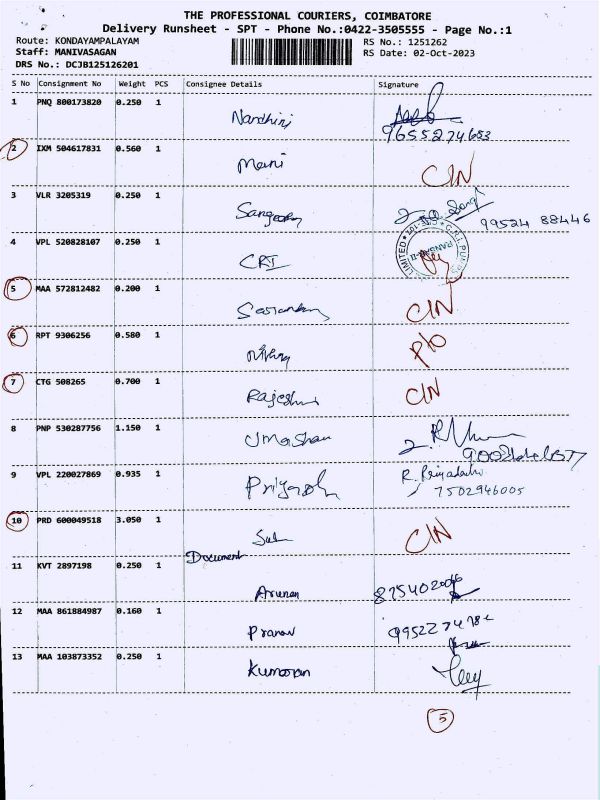 THE PROFESSIONAL COURIERS, COIMBATORE
Delivery Runsheet - SPT - Phone No.:0422-3505555 - Page No.:1
Route: KONDAYAMPALAYAM RS No.: 1251262
Staff: MANIVASAGAN RS Date: 02-Oct-2023
DRS No.: DCJB125126201
S No Consignment No Weight PCS Consignee Details Signature
1 PNQ 800173820 0.250 1
Nandhini
9655274653
2 IXM 504617831 0.560 1
Mani CIN
3 VLR 3205319 0.250 1
99524 88446
4 VPL 520828107 0.250 1
CRI
5 MAA 572812482 0.200 1
CIN
6 RPT 9306256 0.580 1
P/O
7 CTG 508265 0.700 1
Rajeshwi CIN
8 PNP 530287756 1.150 1
Uma Shan
9 VPL 220027869 0.935 1
R. Priyadarshi
7502946005
10 PRD 600049518 3.050 1
CIN
Document
11 KVT 2897198 0.250 1
Arunan
12 MAA 861884987 0.160 1
Pranav
13 MAA 103873352 0.250 1
Kumaran
5